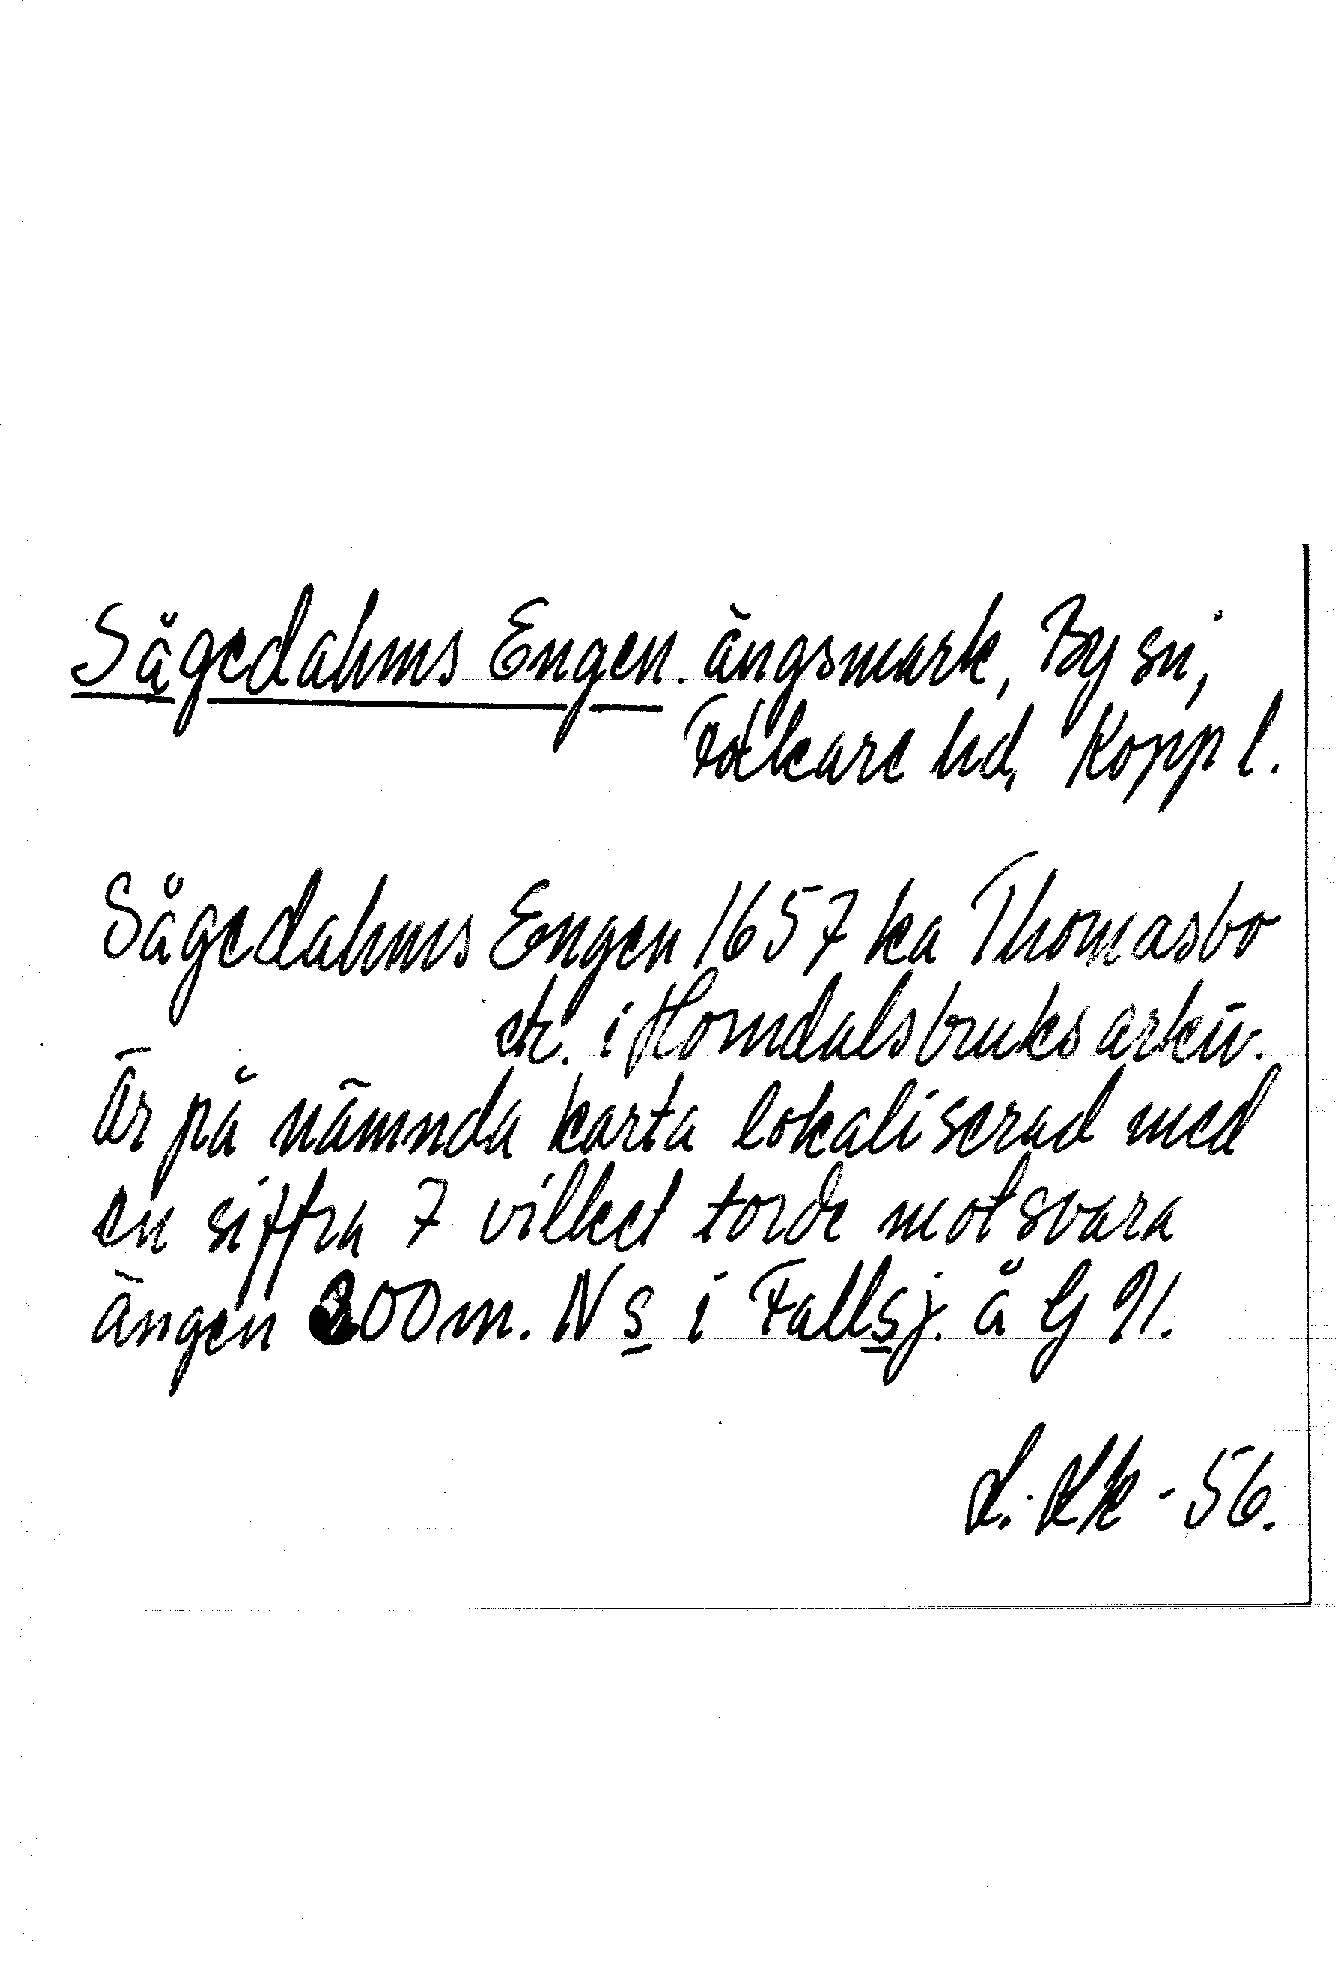 Sågedahms Engen. ängsmark, By sn,
Folkare hd, Kopp l.
Sågedahms Engen 1657 ka Thomasbo
etc. i Horndalsbruks arkiv.
Är på nämnda karta lokaliserad med
en siffra 7 vilket torde motsvara
ängen 300m. N s i Fallsj. å G 91.
L. Kk - 56.